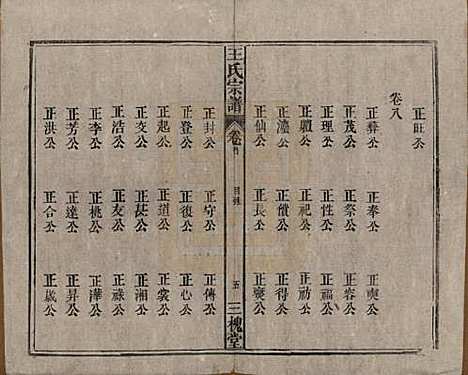 正旺公
卷八
正彝公 正奉公 正奭公
正茂公 正祭公 正容公
正理公 正性公 正福公
正體公 正祀公 正祊公
正瀛公 正償公 正得公
正仙公 正長公 正襄公
王氏宗譜 卷首 目錄 五 三槐堂
正封公 正守公 正傳公
正登公 正復公 正心公
正起公 正道公 正裳公
正交公 正甚公 正湘公
正浩公 正友公 正祿公
正李公 正桃公 正澤公
正芳公 正達公 正昇公
正洪公 正合公 正歲公